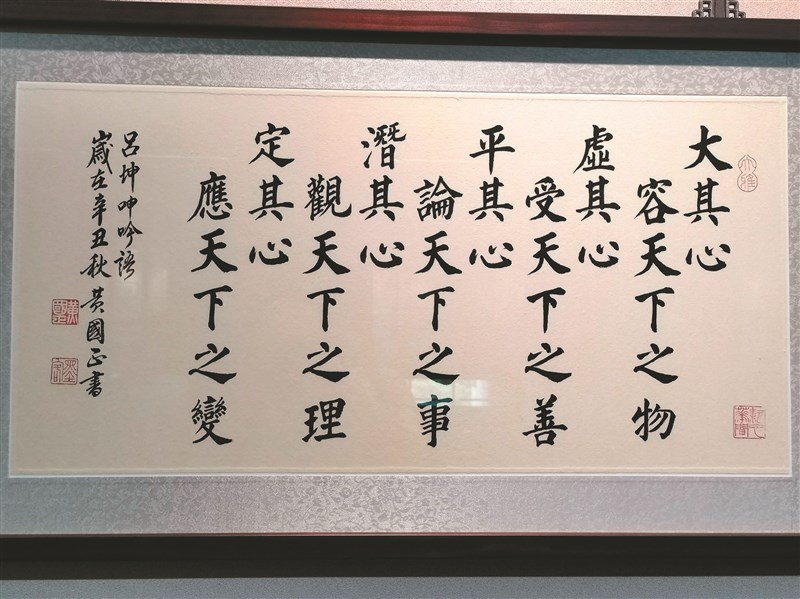 大其心
容天下之物
虛其心
受天下之善
平其心
論天下之事
潛其心
觀天下之理
定其心
應天下之變
呂坤呻吟語
歲在辛丑秋 黃國正書